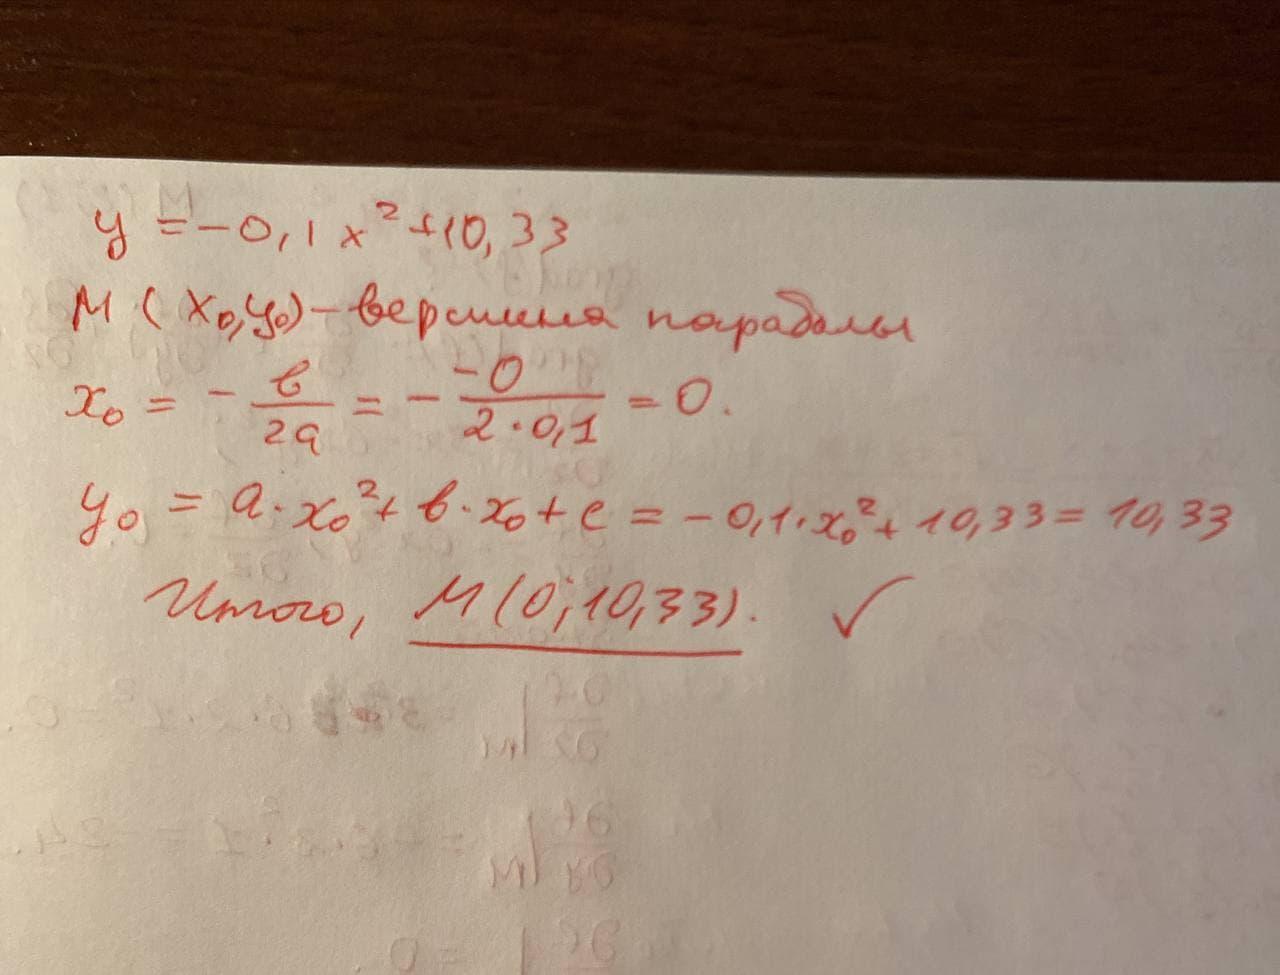 y = -0,1x² + 10,33
M(x₀,y₀) - вершина параболы
x₀ = - в/2a = - -0/2·0,1 = 0.
y₀ = a·x₀² + в·x₀ + c = -0,1·x₀² + 10,33 = 10,33
Итого, M(0; 10,33). ✓